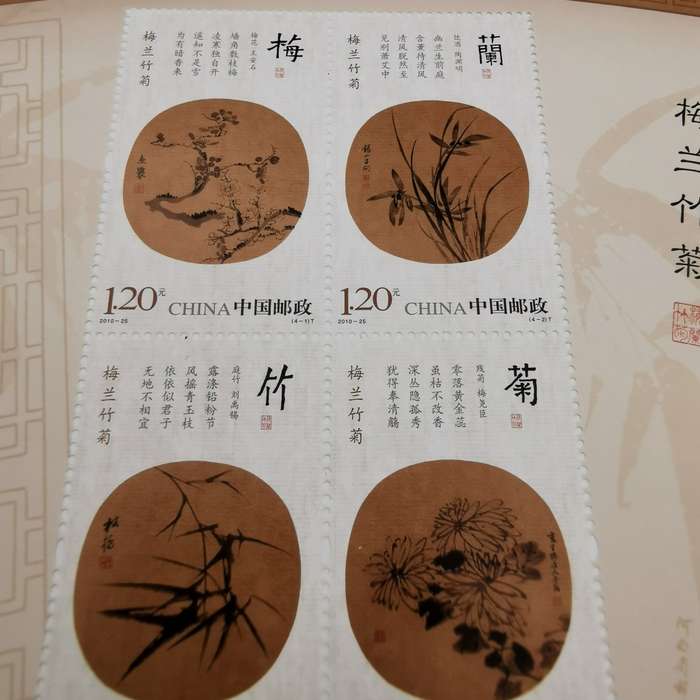 梅
梅花 王安石
墙角数枝梅
凌寒独自开
遥知不是雪
为有暗香来
梅兰竹菊
1.20元 CHINA 中国邮政
2010-25 (4-1)T
蘭
饮酒 陶渊明
幽兰生前庭
含薰待清风
清风脱然至
见别萧艾中
梅兰竹菊
1.20元 CHINA 中国邮政
2010-25 (4-2)T
竹
庭竹 刘禹锡
露涤铅粉节
风摇青玉枝
依依似君子
无地不相宜
梅兰竹菊
菊
残菊 梅尧臣
零落黄金蕊
虽枯不改香
深丛隐孤秀
犹得奉清觞
梅兰竹菊
梅兰竹菊